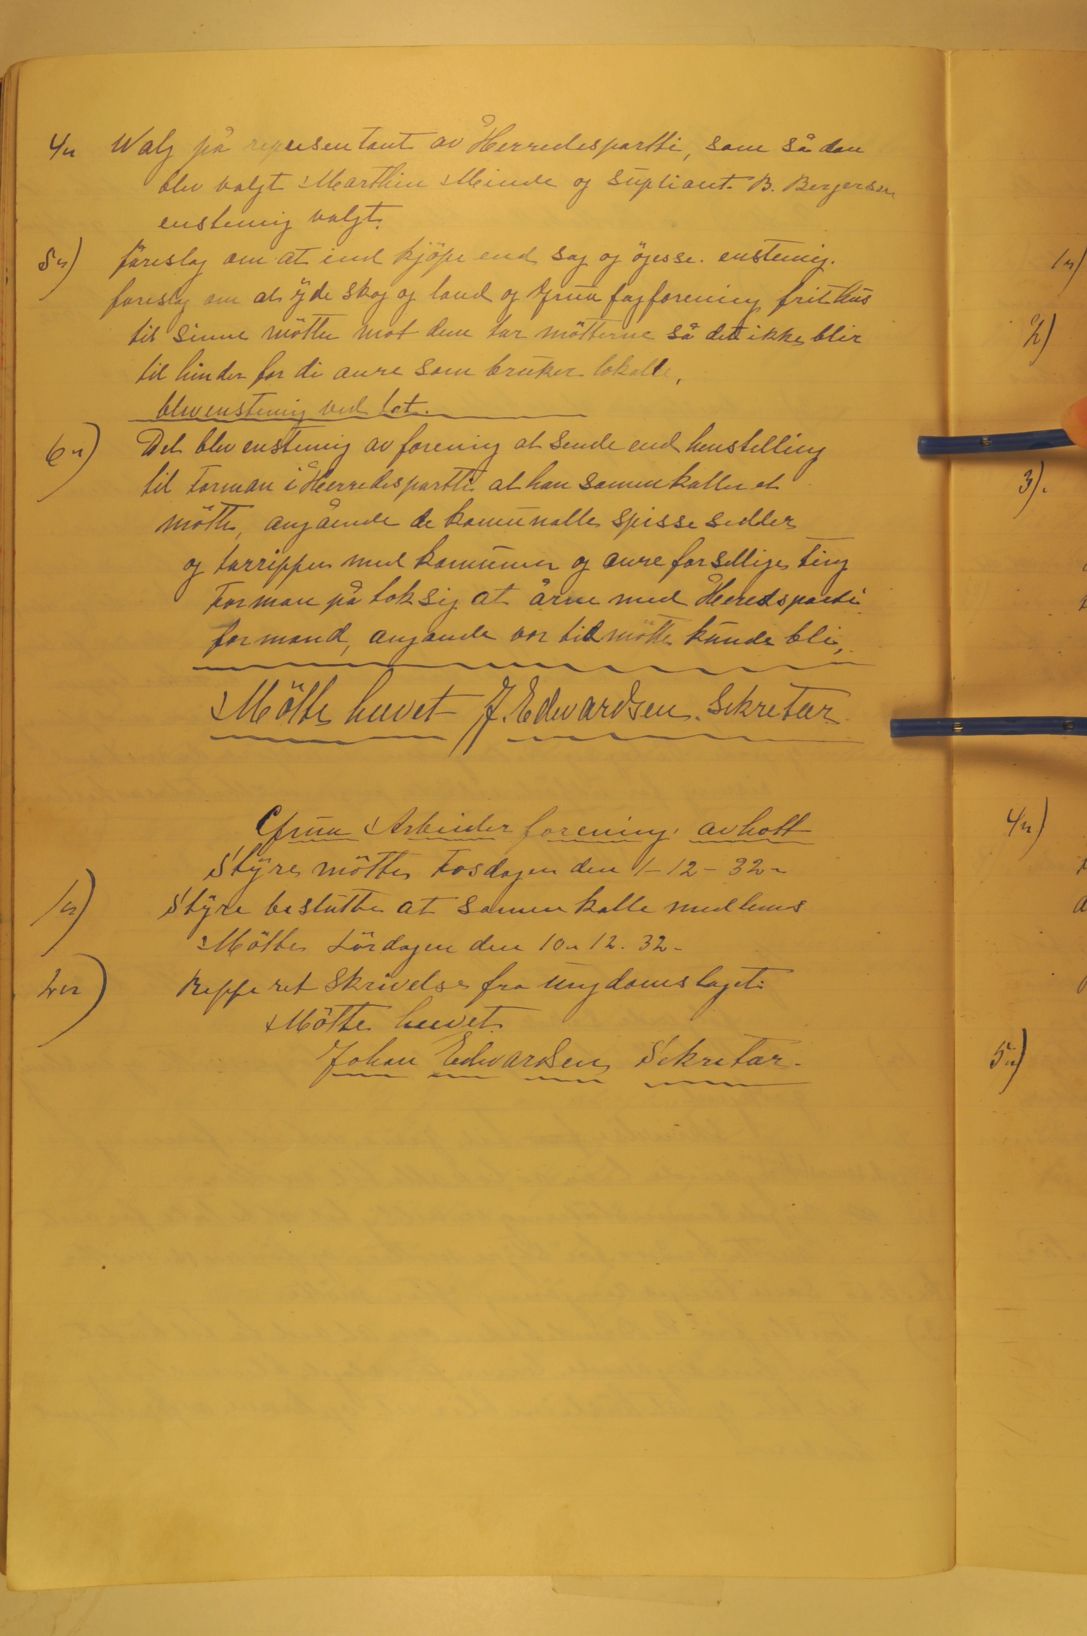 4n Walg på representant av Herredspartti, som så dan
blev valgt Marthin Minde og supliant. B. Bergersen
enstemig valgt.
5n) föreslag om at ind kjöpe end sag og ögsse. enstemig.
foreslag om at yde skog og land og Grua fagforening frit hus
til sinne mötte mot dem tar mötterne så det ikke blir
til hinder for di anre som bruker lokalle,
blev enstemig ved tat.
6n) Det blev enstemig av forening at sende end henstilling
til Forman i Herredspartti at han sammenkaller et
mötte, angående de komunalle spisse sedler
og tarrippen med komunen og anre forsellige ting
Forman på tok sig at årne med Heredsparti
formand, angande vor tid mötte kunde bli,
Mötte hevet J. Edwardsen. Sekretær
Grua Arbeider forening. avholt
Styre mötte Tosdagen den 1-12-32-
1n) Styre beslutte at sammenkalle medlems
Mötte Lördagen den 10n 12. 32-
2n) Refferet Skrivelse fra ungdomslaget.
Mötte hevet.
Johan Edwardsen Sekretær.
1n)
2)
3).
4n)
5n)